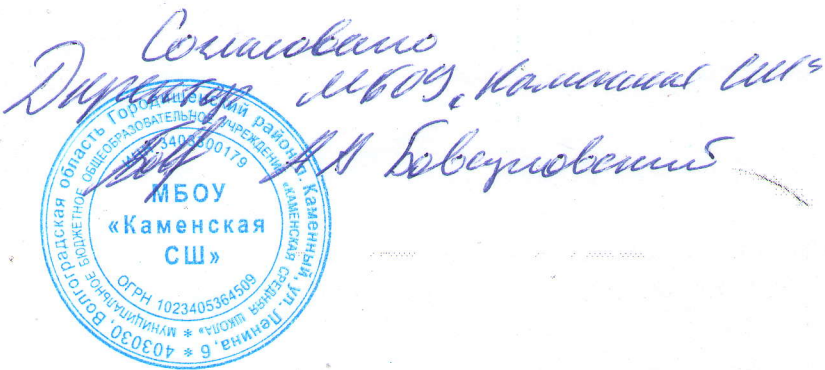 Согласовано
Директор МБОУ "Каменская СШ"
Бовсуновский
403030, Волгоградская область Городищенский район, п. Каменный, ул. Ленина, 6, *
МУНИЦИПАЛЬНОЕ БЮДЖЕТНОЕ ОБЩЕОБРАЗОВАТЕЛЬНОЕ УЧРЕЖДЕНИЕ «КАМЕНСКАЯ СРЕДНЯЯ ШКОЛА» *
ИНН 3403300179
МБОУ
«Каменская
СШ»
ОГРН 1023405364509